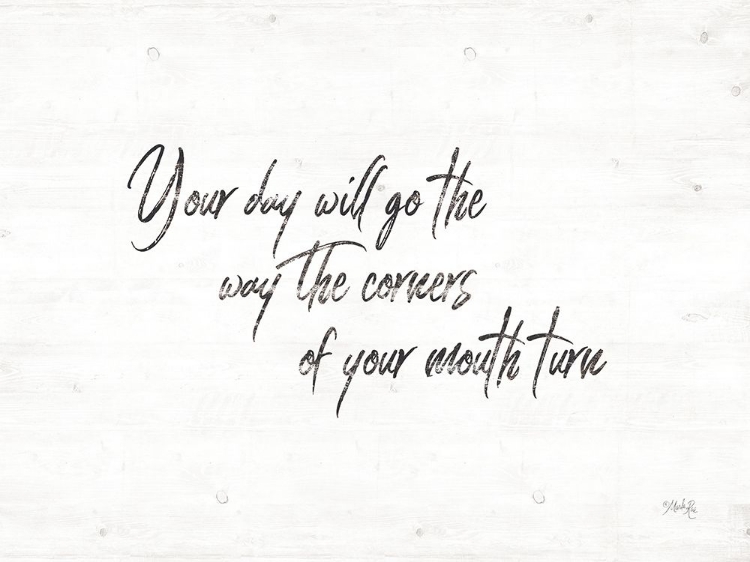 Your day will go the
way the corners
of your mouth turn
©Marla Rae